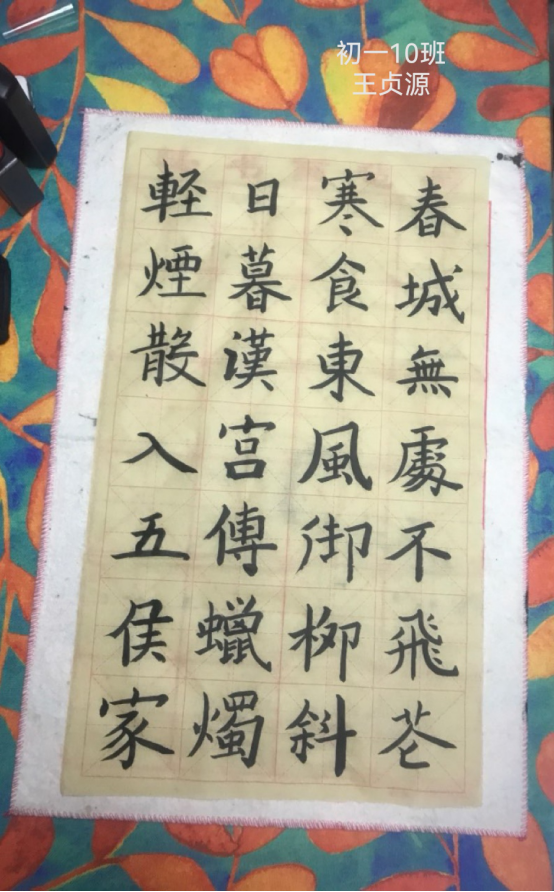 初一10班
王贞源
春城無處不飛花
寒食東風御柳斜
日暮漢宮傳蠟燭
輕煙散入五侯家